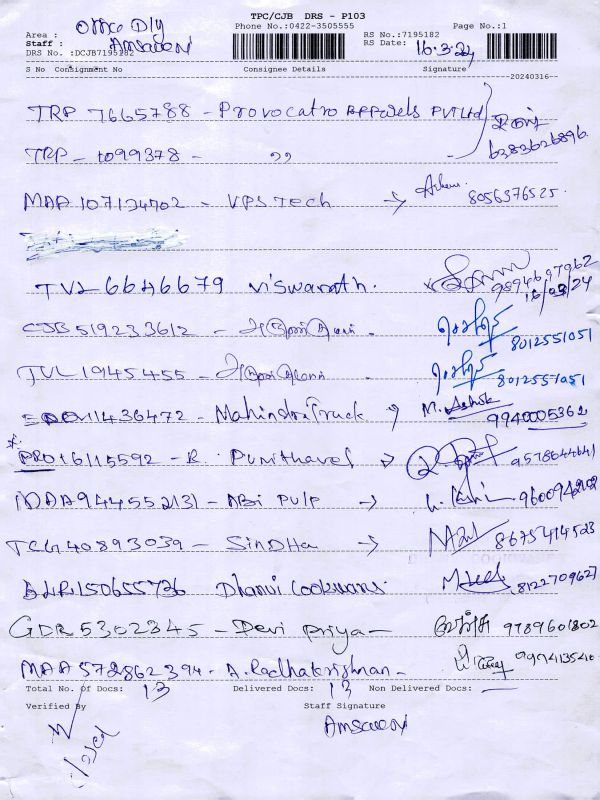 TPC/CJB DRS - P103
Office Dly
Phone No.:0422-3505555 Page No.:1
Area :
Staff : Amsaveni RS No.:7195182
DRS No. :DCJB7195182 RS Date: 16.3.24
S No Consignment No Consignee Details Signature
20240316
TRP 7665788 - Provocatro Apparels PVT Ltd
TRP - 1099378 - ,, 6383626896
MAA 107134702 - VPS Tech → 8056376525
TVL 6646679 Viswanath. 9894697962
16/03/24
CJB 519233612 - 8012551051
TVL 1945455 - 8012551051
11436472 - Mahindra Truck M. Ashok
9940005362
PRO 16115592 - R. Punithavel → 9578644641
MAA 944552131 - ABi PULP → 9600942102
TCG 40893039 - SinDHa → 8675414523
BLR 150655736 Dhanvi Cookwans. 8122709627
GDR 5302345 - Devi Priya - 9789601802
MAA 572862394 - A. Radhakrishnan -
Total No. Of Docs: 13 Delivered Docs: 13 Non Delivered Docs: —
Verified By Staff Signature
Amsaveni